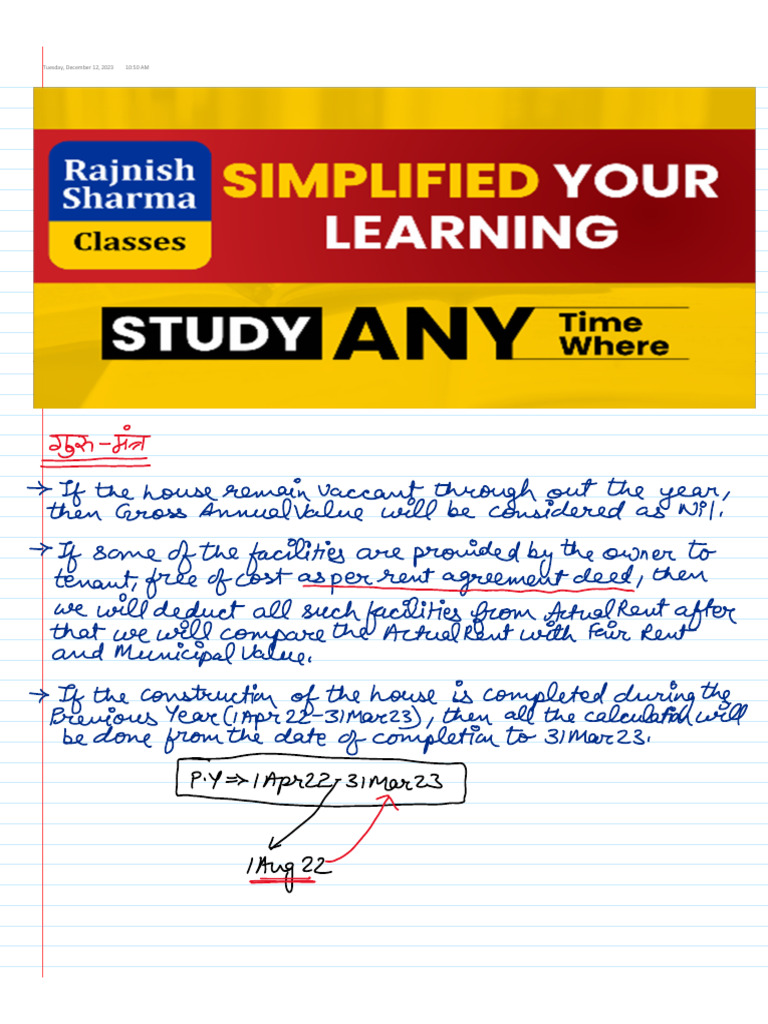 Tuesday, December 12, 2023 10:59 AM
Rajnish
Sharma
Classes
SIMPLIFIED YOUR
LEARNING
STUDY ANY Time
Where
गुरु-मंत्र
→ If the house remain vaccant through out the year,
then Gross Annual Value will be considered as Nil.
→ If some of the facilities are provided by the owner to
tenant, free of cost as per rent agreement deed, then
we will deduct all such facilities from Actual Rent after
that we will compare the Actual Rent with Fair Rent
and Municipal Value.
→ If the construction of the house is completed during the
Previous Year (1 Apr 22-31 Mar 23), then all the calculation will
be done from the date of completion to 31 Mar 23.
P.Y ⇒ 1 Apr 22-31 Mar 23
1 Aug 22